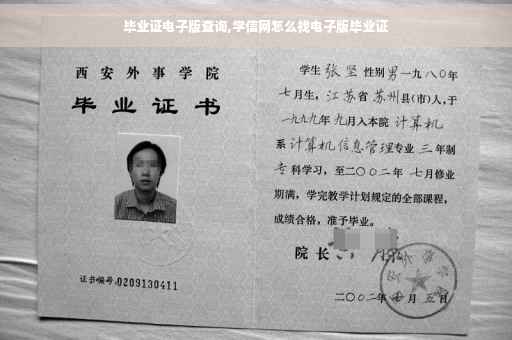 毕业证电子版查询,学信网怎么找电子版毕业证
西安外事学院
毕业证书
证书编号:0209130411
学生 张坚 性别 男 一九八〇年
七月生，江苏省苏州县(市)人,于
一九九九年九月入本院 计算机
系 计算机信息管理 专业 三 年制
专科学习，至二〇〇二年 七月修业
期满，学完教学计划规定的全部课程，
成绩合格，准予毕业。
院长
二〇〇二年 月 五日